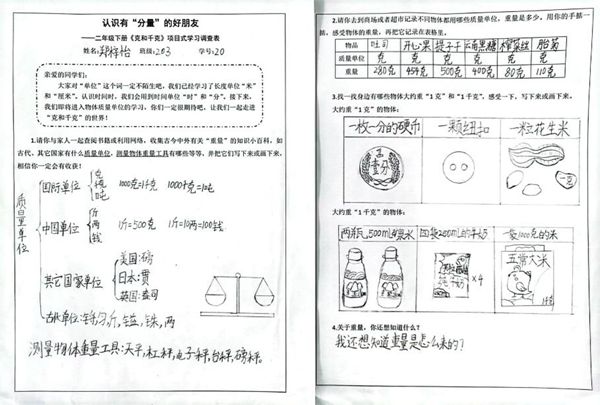 认识有“分量”的好朋友
——二年级下册《克和千克》项目式学习调查表
姓名:郑梓怡 班级:203 学号:20
亲爱的同学们：
大家对“单位”这个词一定不陌生吧，我们已经学习了长度单位“米”
和“厘米”。认识时间时，我们会用到时间单位“时”和“分”。接下来，
我们即将进入物体质量单位的学习，你们一定很期待吧。让我们一起走进
“克和千克”的世界！
1.请你与家人一起查阅书籍或利用网络，收集古今中外有关“重量”的知识小百科，如
古代、其它国家有什么质量单位，测量物体重量工具有哪些等等，并把它们写下来或画下来。
相信你一定会有收获！
质量单位
国际单位
克
千克
吨
1000克=1千克 1000千克=1吨
中国单位
斤
两
钱
1斤=500克 1斤=10两=100钱
其它国家单位
美国:磅
日本:贯
英国:盎司
古代单位:钧,斤,镒,铢,两
测量物体重量工具:天平,杠秤,电子秤,台秤,磅秤。
2.请你去到商场或者超市记录不同物体都用哪些质量单位，重量是多少。用你的手掂一
掂，感受物体的重量，再把它记录在表格里。
物品 吐司 开心果 提子干 云南黑糖 榨菜丝
质量单位 克 克 克 克 克 克
重量 280克 454克 500克 400克 80克 110克
3.找一找身边有哪些物体大约重“1克”和“1千克”，感受一下，写下来或画下来。
大约重“1克”的物体：
一枚一分的硬币 一颗纽扣 一粒花生米
壹分
大约重“1千克”的物体：
两瓶500mL的果水 四袋250mL的牛奶 一袋1000克的米
×4
五常大米
4.关于重量，你还想知道什么？
我还想知道重量是怎么来的?